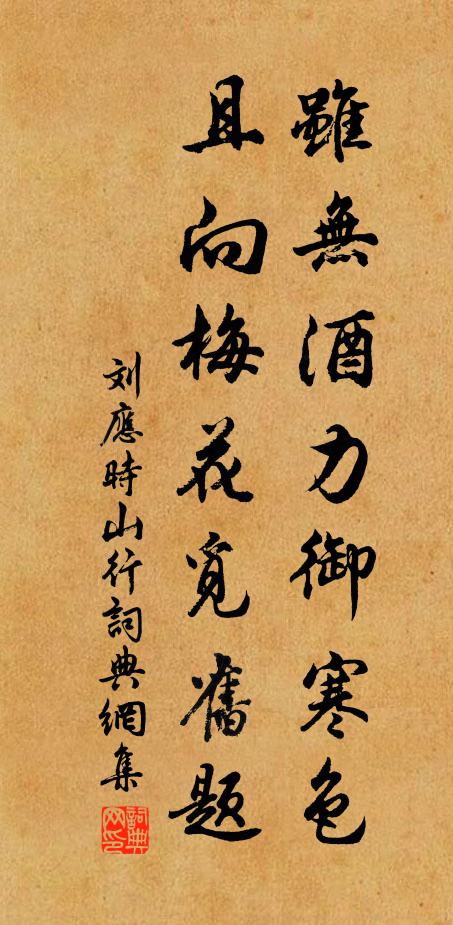 雖無酒力御寒色
且向梅花覓舊題
刘應時山行詞典網集
詞典网印